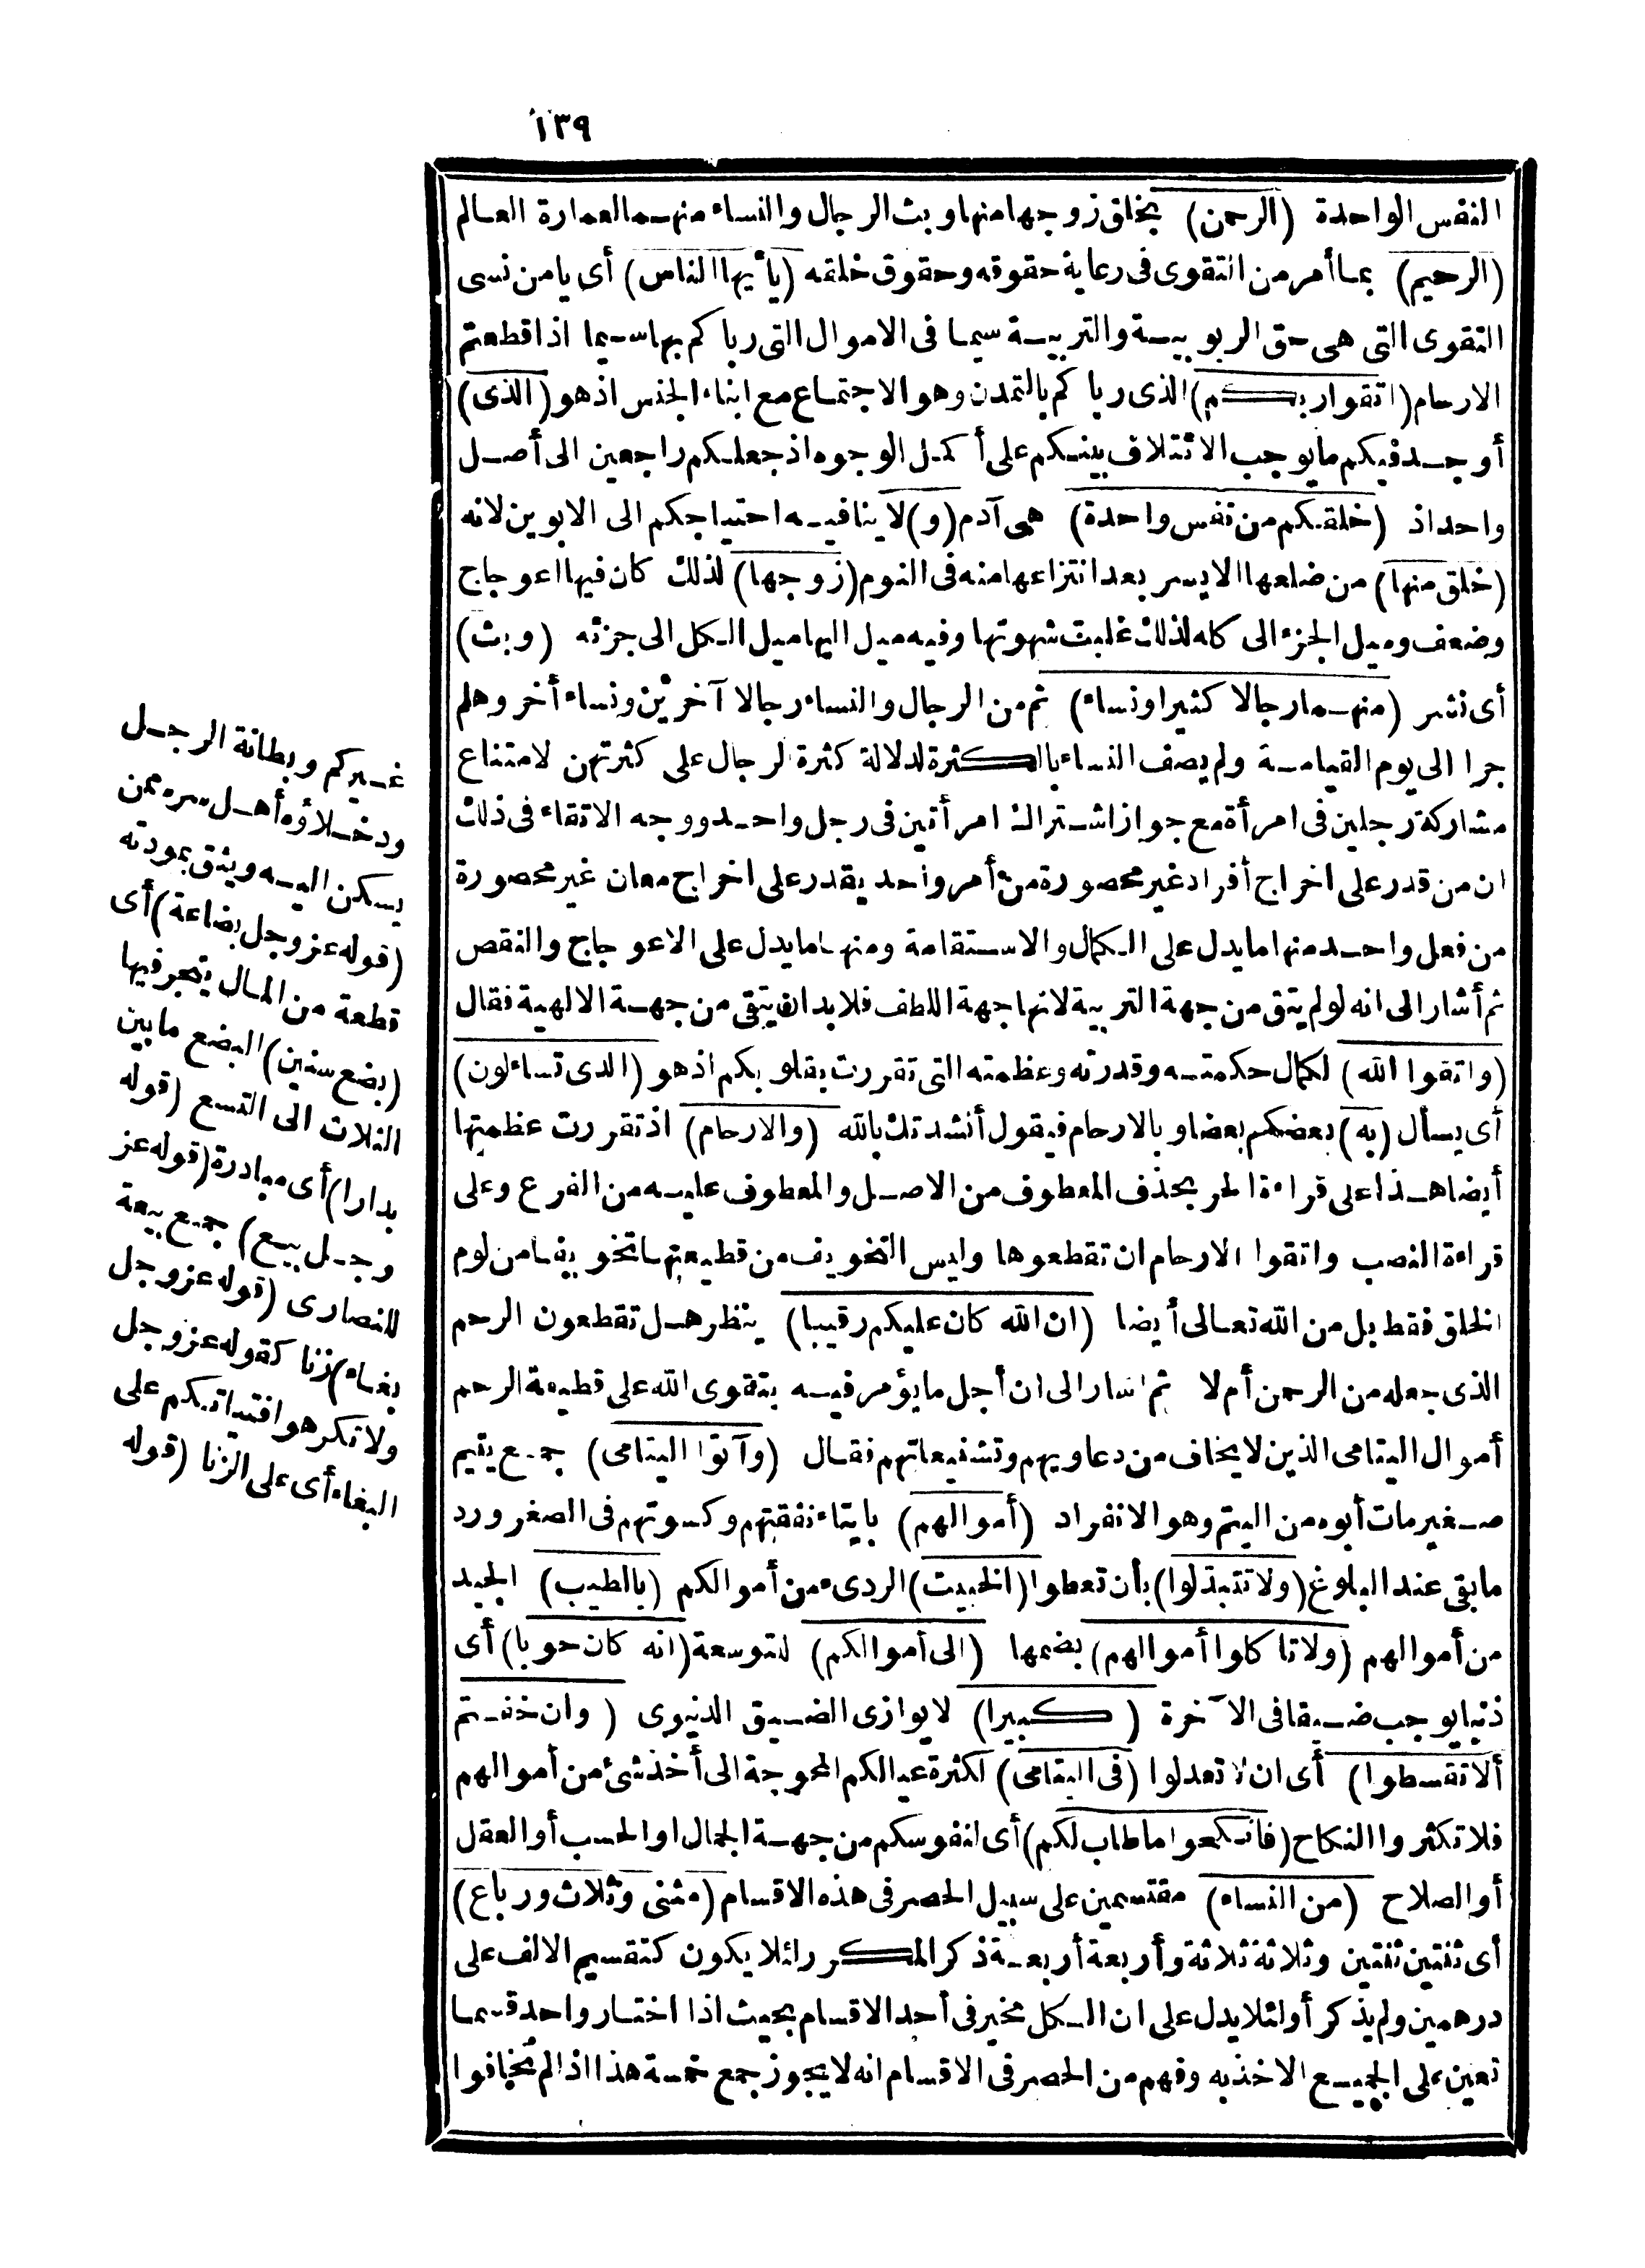 ١٣٩
النفس الواحدة (الرحمن) بخلق زوجها منها وبث الرجال والنساء منهما لعمارة العالم
(الرحيم) بما أمر من التقوى فى رعاية حقوقه وحقوق خلقه (يا أيها الناس) أى يا من نسى
التقوى التى هى حق الربوبية والتربية سيما فى الاموال التى رباكم بها سيما اذا قطعتم
الارحام (اتقوا ربكم) الذى رباكم بالتمدن وهو الاجتماع مع ابناء الجنس اذ هو (الذى)
أوجد فيكم ما يوجب الائتلاف بينكم على أكمل الوجوه اذ جعلكم راجعين الى أصل
واحد اذ (خلقكم من نفس واحدة) هى آدم (و) لا ينافيه احتياجكم الى الابوين لانه
(خلق منها) من ضلعها الايسر بعد انتزاعها منه فى النوم (زوجها) لذلك كان فيها اعوجاج
وضعف وميل الجزء الى كله لذلك غلبت شهوتها وفيه ميل اليها ميل الكل الى جزئه (وبث)
أى نشر (منهما رجالا كثيرا ونساء) ثم من الرجال والنساء رجالا آخرين ونساء أخر وهلم
جرا الى يوم القيامة ولم يصف النساء بالكثرة لدلالة كثرة الرجال على كثرتهن لامتناع
مشاركة رجلين فى امرأة مع جواز اشتراك امرأتين فى رجل واحد ووجه الاتقاء فى ذلك
ان من قدر على اخراج أفراد غير محصورة من أمر واحد يقدر على اخراج معان غير محصورة
من فعل واحد منها ما يدل على الكمال والاستقامة ومنها ما يدل على الاعوجاج والنقص
ثم أشار الى انه لو لم يتق من جهة التربية لانها جهة اللطف فلا بد ان يتقى من جهة الالهية فقال
(واتقوا الله) لكمال حكمته وقدرته وعظمته التى تقررت بقلوبكم اذ هو (الذى تساءلون)
أى يسأل (به) بعضكم بعضا وبالارحام فيقول أنشدتك بالله (والارحام) اذ تقررت عظمتها
أيضا هذا على قراءة الجر بحذف المعطوف من الاصل والمعطوف عليه من الفرع وعلى
قراءة النصب واتقوا الارحام ان تقطعوها وليس التخويف من قطيعتها تخويفا من لوم
الخلق فقط بل من الله تعالى أيضا (ان الله كان عليكم رقيبا) ينظر هل تقطعون الرحم
الذى جعله من الرحمن أم لا ثم اشار الى ان أجل ما يؤمر فيه بتقوى الله على قطيعة الرحم
أموال اليتامى الذين لا يخاف من دعاويهم وتشنيعاتهم فقال (وآتوا اليتامى) جمع يتيم
صغير مات أبوه من اليتم وهو الانفراد (أموالهم) بايتاء نفقتهم وكسوتهم فى الصغر ورد
ما بقى عند البلوغ (ولا تتبدلوا) بأن تعطوا (الخبيث) الردىء من أموالكم (بالطيب) الجيد
من أموالهم (ولا تأكلوا أموالهم) بضمها (الى أموالكم) للتوسعة (انه كان حوبا) أى
ذنبا يوجب ضيقا فى الآخرة (كبيرا) لا يوازى الضيق الدنيوى (وان خفتم
ألا تقسطوا) أى ان لا تعدلوا (فى اليتامى) لكثرة عيالكم المحوجة الى أخذ شئ من أموالهم
فلا تكثروا النكاح (فانكحوا ما طاب لكم) أى لنفوسكم من جهة الجمال او الحسب أو العقل
أو الصلاح (من النساء) مقتسمين على سبيل الحصر فى هذه الاقسام (مثنى وثلاث ورباع)
أى ثنتين ثنتين وثلاثة ثلاثة وأربعة أربعة ذكر المكرر لئلا يكون كتقسيم الالف على
درهمين ولم يذكر أو لئلا يدل على ان الكل مخير فى أحد الاقسام بحيث اذا اختار واحد قسما
تعين على الجميع الاخذ به وفهم من الحصر فى الاقسام انه لا يجوز جمع خمسة هذا اذا لم تخافوا
غيركم وبطانة الرجل
ودخلاؤه أهل سره ممن
يسكن اليه ويثق بمودته
(قوله عز وجل بضاعة) أى
قطعة من المال يتجر فيها
(بضع سنين) البضع ما بين
الثلاث الى التسع (قوله
بدارا) أى مبادرة (قوله عز
وجل بيع) جمع بيعة
للنصارى (قوله عز وجل
بغاء) زنا كقوله عز وجل
ولا تكرهوا فتياتكم على
البغاء أى على الزنا (قوله